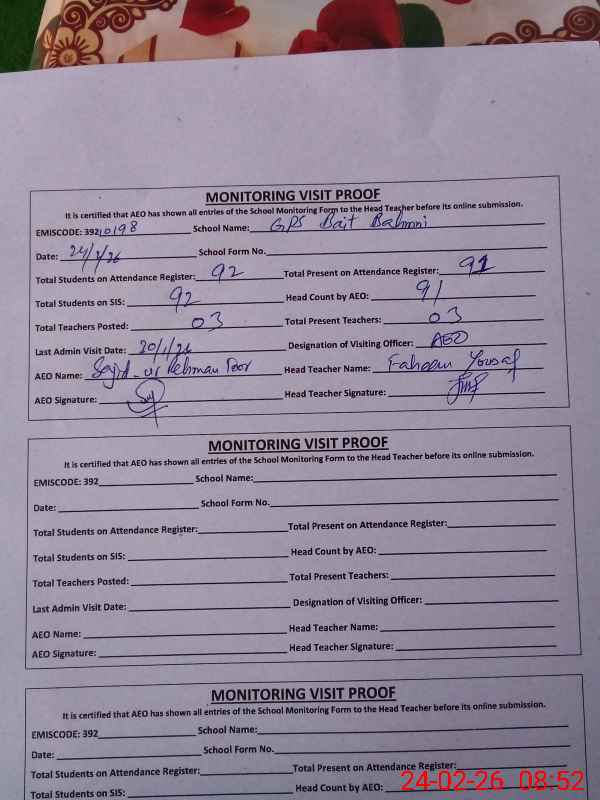 MONITORING VISIT PROOF
It is certified that AEO has shown all entries of the School Monitoring Form to the Head Teacher before its online submission.
EMISCODE: 39210198 School Name: GPS Bait Bahmni
Date: 24/2/26 School Form No.
Total Students on Attendance Register: 92 Total Present on Attendance Register: 91
Total Students on SIS: 92 Head Count by AEO: 91
Total Teachers Posted: 03 Total Present Teachers: 03
Last Admin Visit Date: 30/1/26 Designation of Visiting Officer: AEO
AEO Name: Sajid-ur Rehman Head Teacher Name: Faheem Yousaf
AEO Signature: Head Teacher Signature:
MONITORING VISIT PROOF
It is certified that AEO has shown all entries of the School Monitoring Form to the Head Teacher before its online submission.
EMISCODE: 392 School Name:
Date: School Form No.
Total Students on Attendance Register: Total Present on Attendance Register:
Total Students on SIS: Head Count by AEO:
Total Teachers Posted: Total Present Teachers:
Last Admin Visit Date: Designation of Visiting Officer:
AEO Name: Head Teacher Name:
AEO Signature: Head Teacher Signature:
MONITORING VISIT PROOF
It is certified that AEO has shown all entries of the School Monitoring Form to the Head Teacher before its online submission.
EMISCODE: 392 School Name:
Date: School Form No.
Total Students on Attendance Register: Total Present on Attendance Register:
Total Students on SIS: Head Count by AEO:
24-02-26 08:52